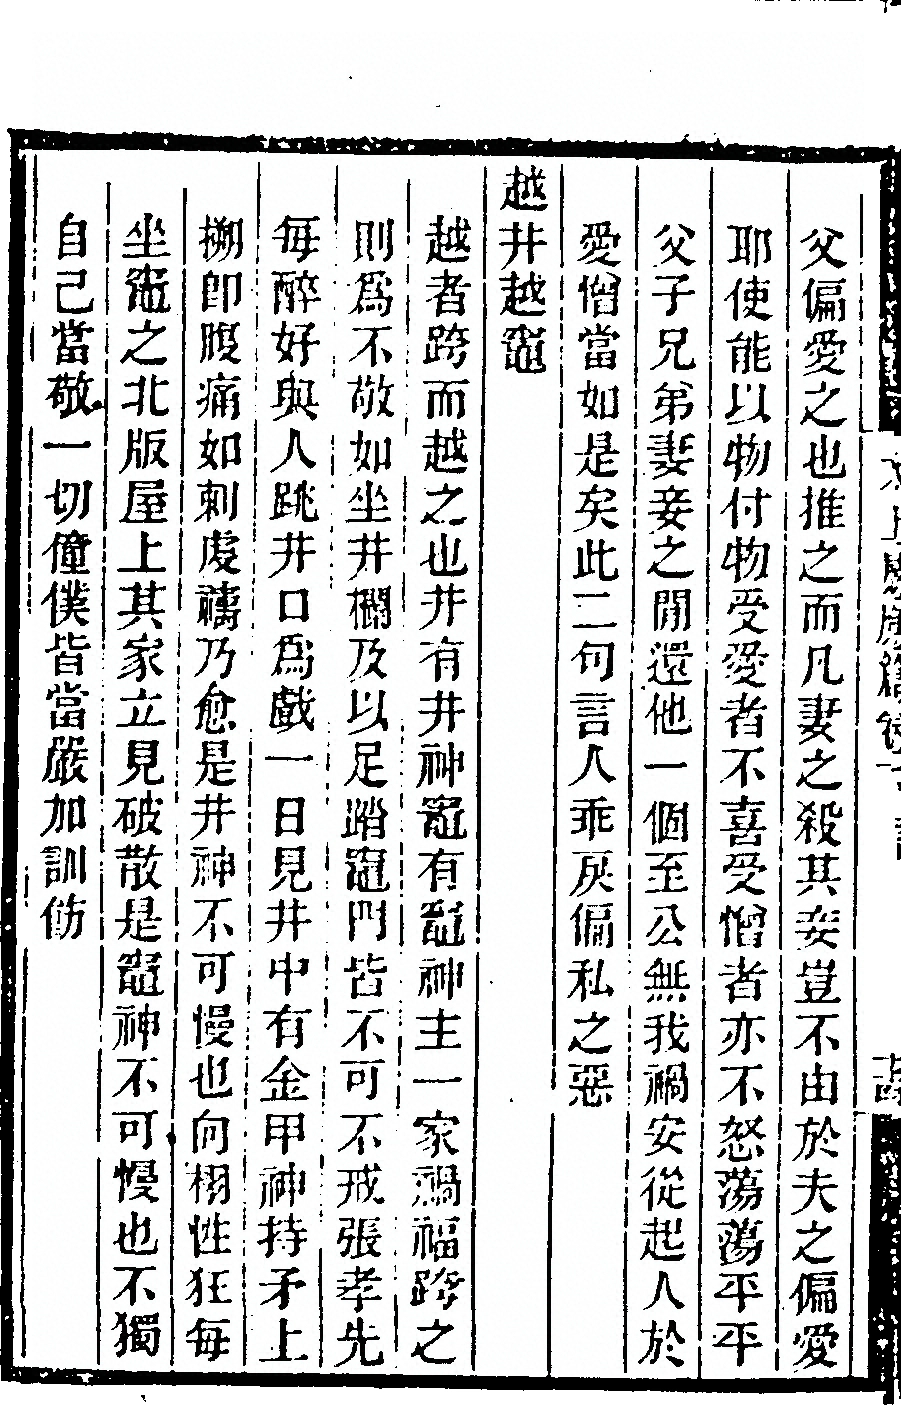 父偏愛之也推之而凡妻之殺其妾豈不由於夫之偏愛
耶使能以物付物受愛者不喜受憎者亦不怒蕩蕩平平
父子兄弟妻妾之閒還他一個至公無我禍安從起人於
愛憎當如是矣此二句言人乖戾偏私之惡
越井越竈
越者跨而越之也井有井神竈有竈神主一家禍福跨之
則爲不敬如坐井欄及以足踏竈門皆不可不戒張孝先
每醉好與人跳井口爲戲一日見井中有金甲神持矛上
搠卽腹痛如刺虔禱乃愈是井神不可慢也向栩性狂每
坐竈之北版屋上其家立見破散是竈神不可慢也不獨
自己當敬一切僮僕皆當嚴加訓飭